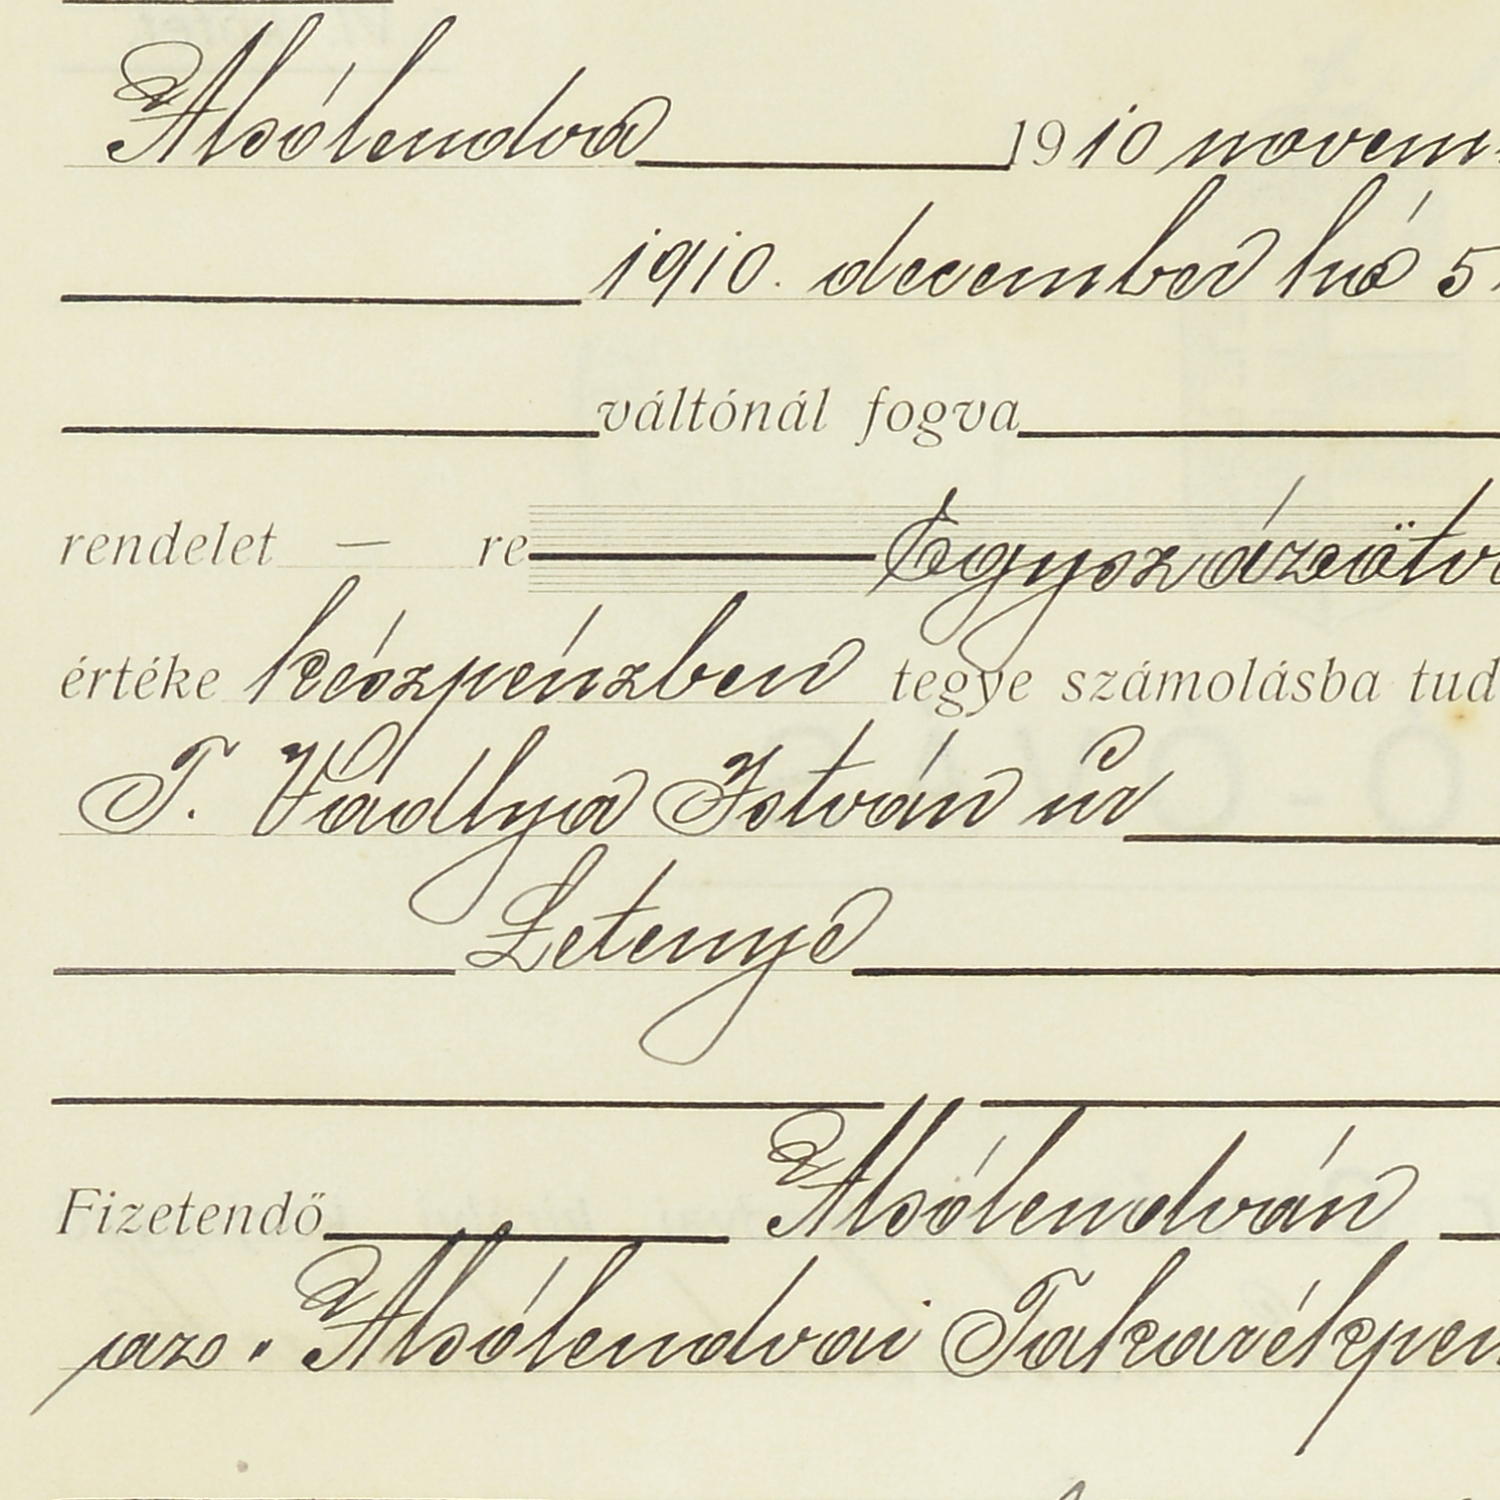 Alsólendva 1910 novem
1910. december hó 5
váltónál fogva
rendelet — re Egyszázötv
értéke készpénzben tegye számolásba tud
T. Vadlya István úr
Letenye
Fizetendő Alsólendván
az "Alsólendvai Takarékpén